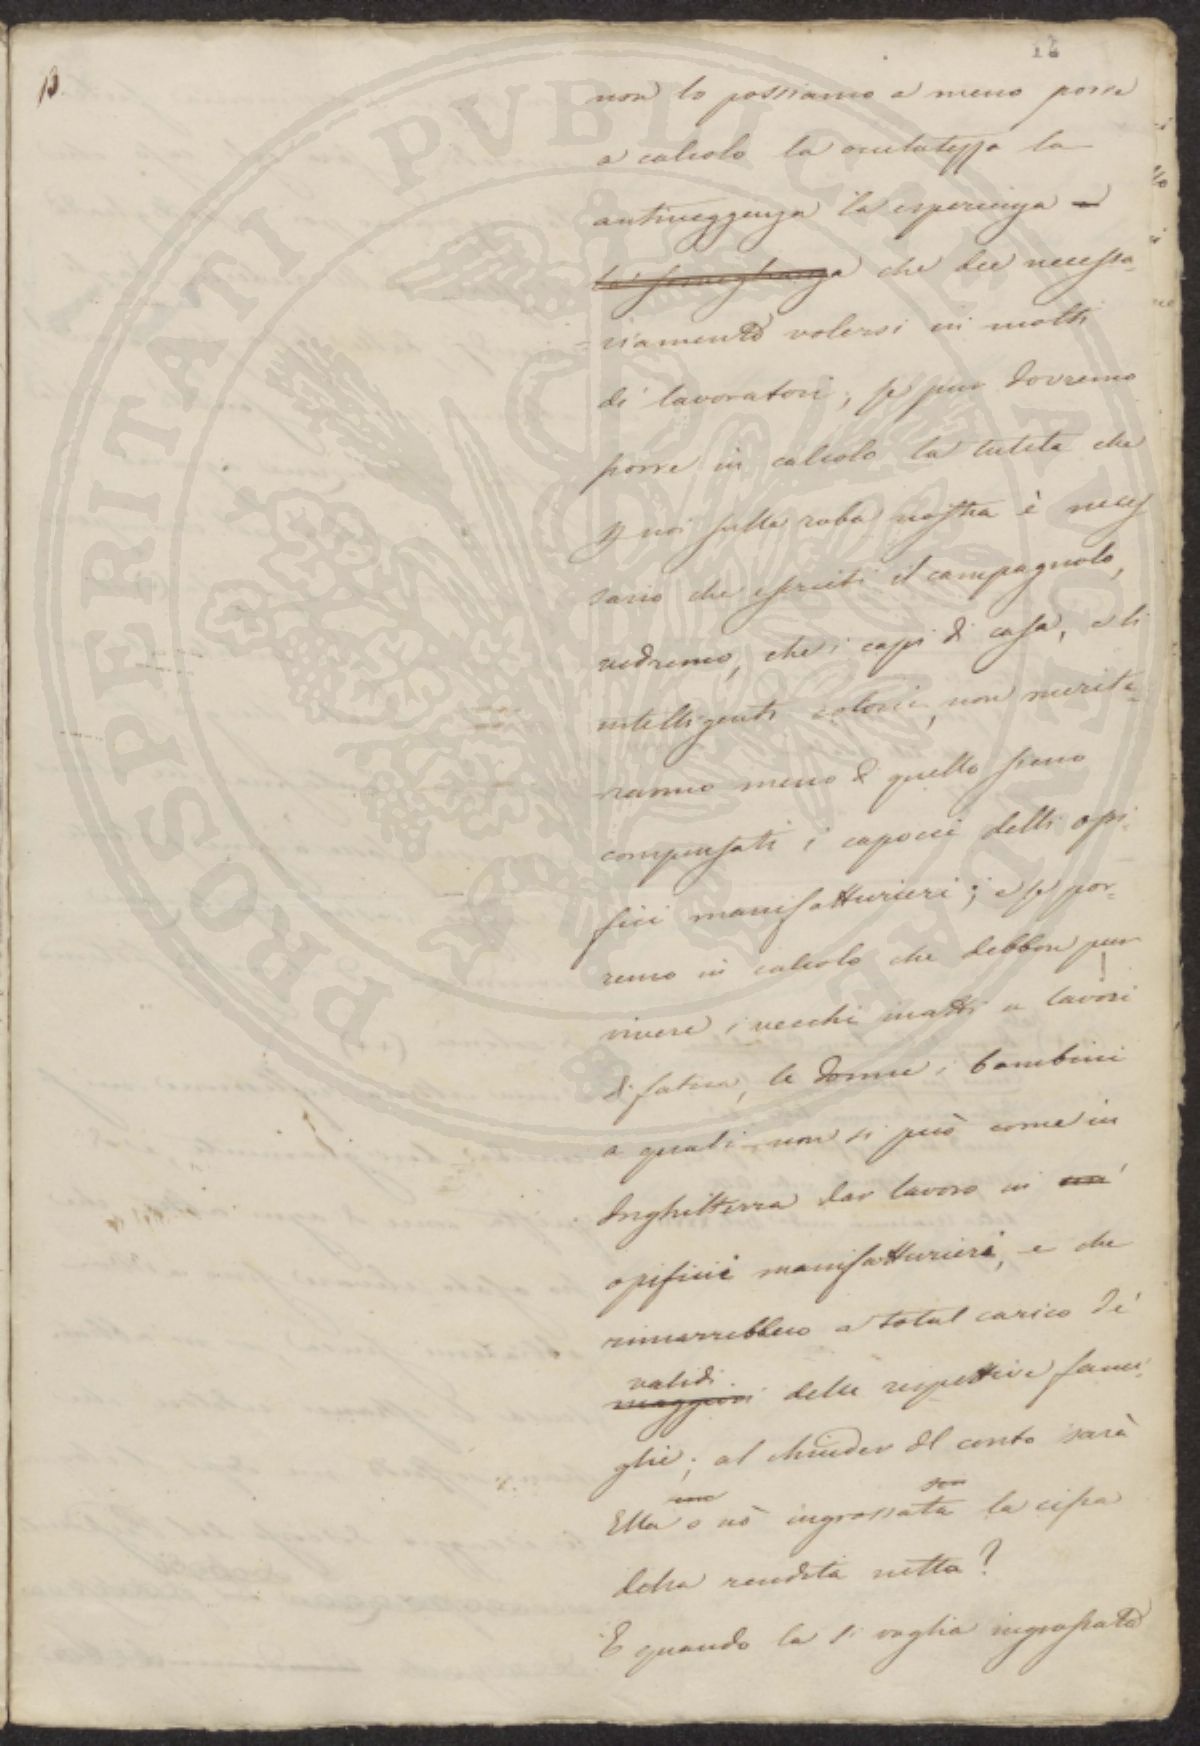 12
13.
PROSPERITATI PVBLICAE AVGENDAE
non lo possiamo a meno porre
a calcolo la oculatezza la
antiveggenza la esperienza e
la sorveglianza che dee necessa-
riamente volersi in molti
de' lavoratori, se pur dovremo
porre in calcolo la tutela che
p noi sulla roba nostra è neces
sario che eserciti il campagnolo,
vedremo, che i capi di casa, e li
intelligenti coloni, non merite-
ranno meno di quello sieno
compensati i capocci delli opi-
fici manifatturieri; e se por-
remo in calcolo che debbon pur
vivere i vecchi inatti a lavori
di fatica, le donne i bambini
a quali non si può come in
Inghilterra dar lavoro in un'
opificii manifatturieri, e che
rimarrebbero a total carico de'
validi
maggiori delle respettive fami-
glie; al chiuder del conto sarà
Ella o nò ingrossata la cifra
della rendita netta?
E quando la si voglia ingrossata